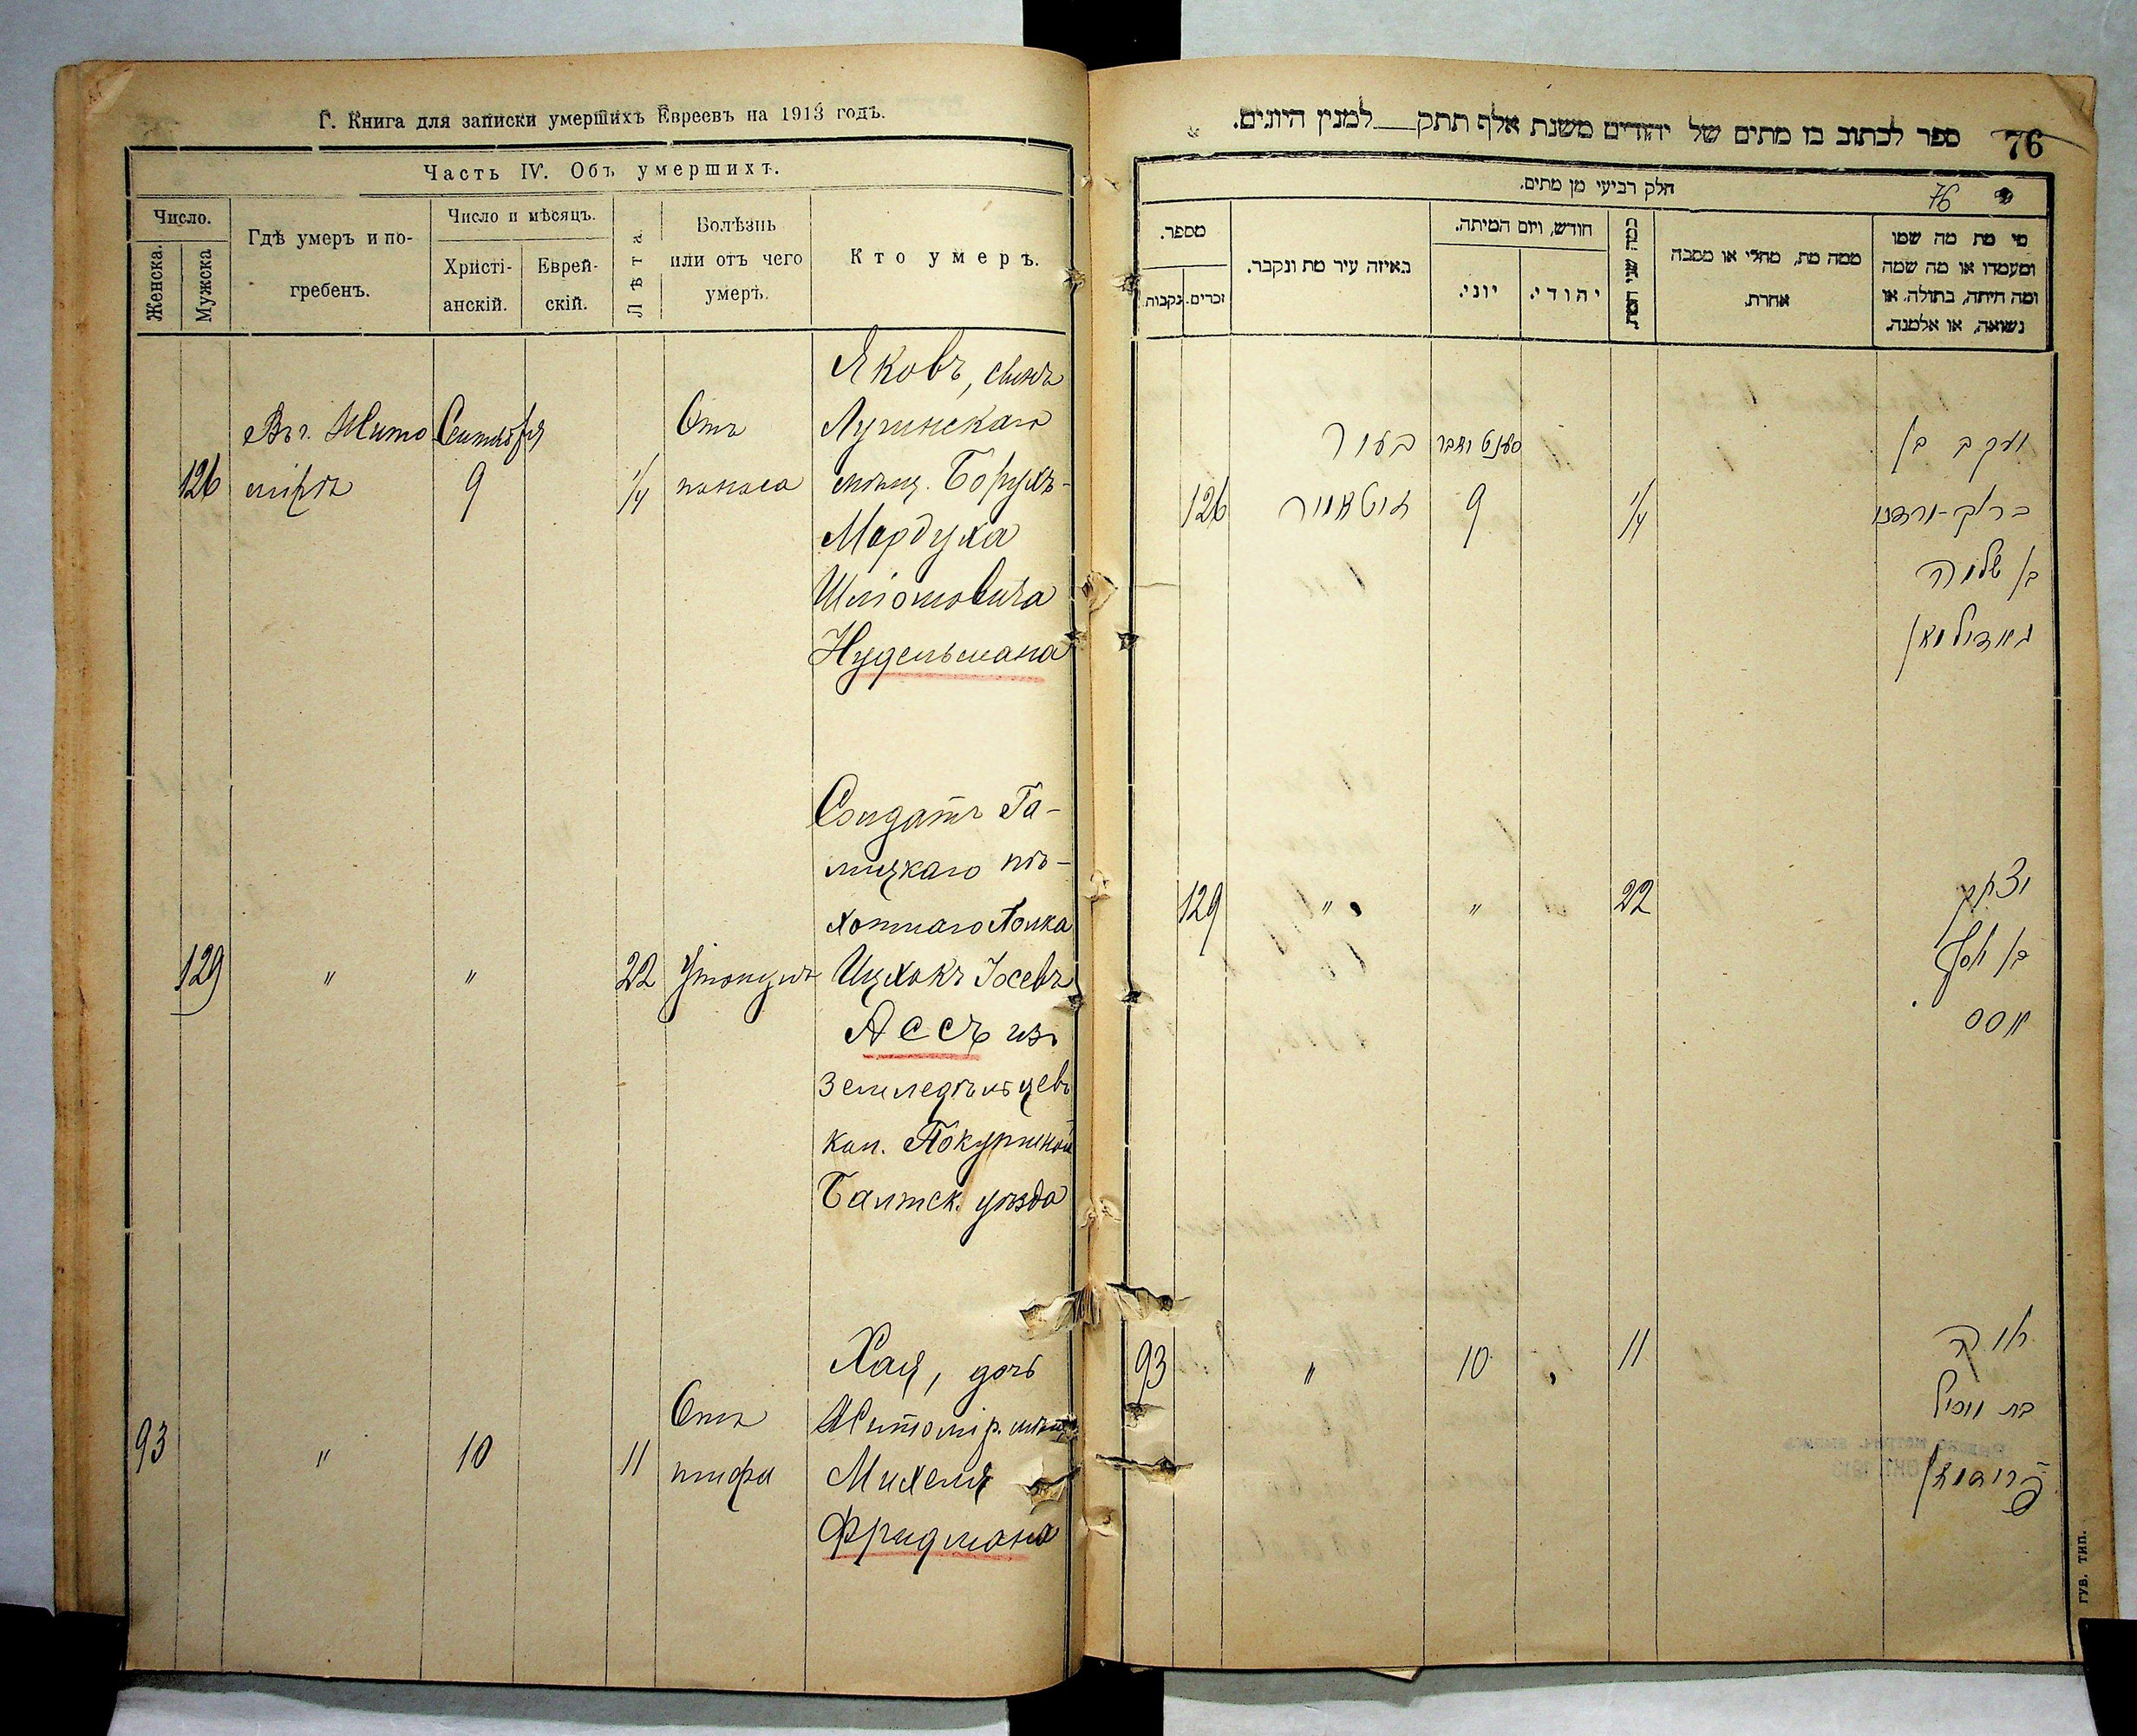 Г. Книга для записки умершихъ Евреевъ на 1913 годъ.
Часть IV. Объ умершихъ.
Число.
Женска.
Мужска
Гдѣ умеръ и по-
гребенъ.
Число и мѣсяцъ.
Христі-
анскій.
Еврей-
скій.
Лѣта.
Болѣзнь
или отъ чего
умеръ.
Кто умеръ.
126
Въ г. Жито
міръ
Сентября
9
1/4
Отъ
поноса
Яковъ, сынъ
Лугинскаго
мѣщ. Борухъ-
Мордуха
Шліомовича
Нудельмана
129
"
"
22
Утонулъ
Солдатъ Га-
лицкаго пѣ-
хотнаго полка
Ицхокъ Іосевъ
Ассъ изъ
земледѣльцевъ
кол. Покутиной
Балтск. уѣзда
93
"
10
11
Отъ
тифа
Хая, дочь
Житомір. мѣщ.
Михеля
Фридмана
76
ספר לכתוב בו מתים של יהודים משנת אלף תתק למנין היונים.
76
חלק רביעי מן מתים.
מספר.
נקבות.
זכרים.
באיזה עיר מת ונקבר.
חודש, ויום המיתה.
יוני.
יהודי.
כמה שני המת
ממה מת, מחלי או מסבה
אחרת.
מי מת מה שמו
ומעמדו או מה שמה
ומה היתה, בתולה, או
נשואה, או אלמנה.
126
בעיר
זיטאמיר
סעפטעמבר
9
1/4
יעקב בן
ברוך-מרדכי
בן שלמה
נודילמאן
129
"
"
22
יצחק
בן יוסף
אסס
93
"
10
11
חיה
בת מיכל
פרידמאן
ГУБ. ТИП.